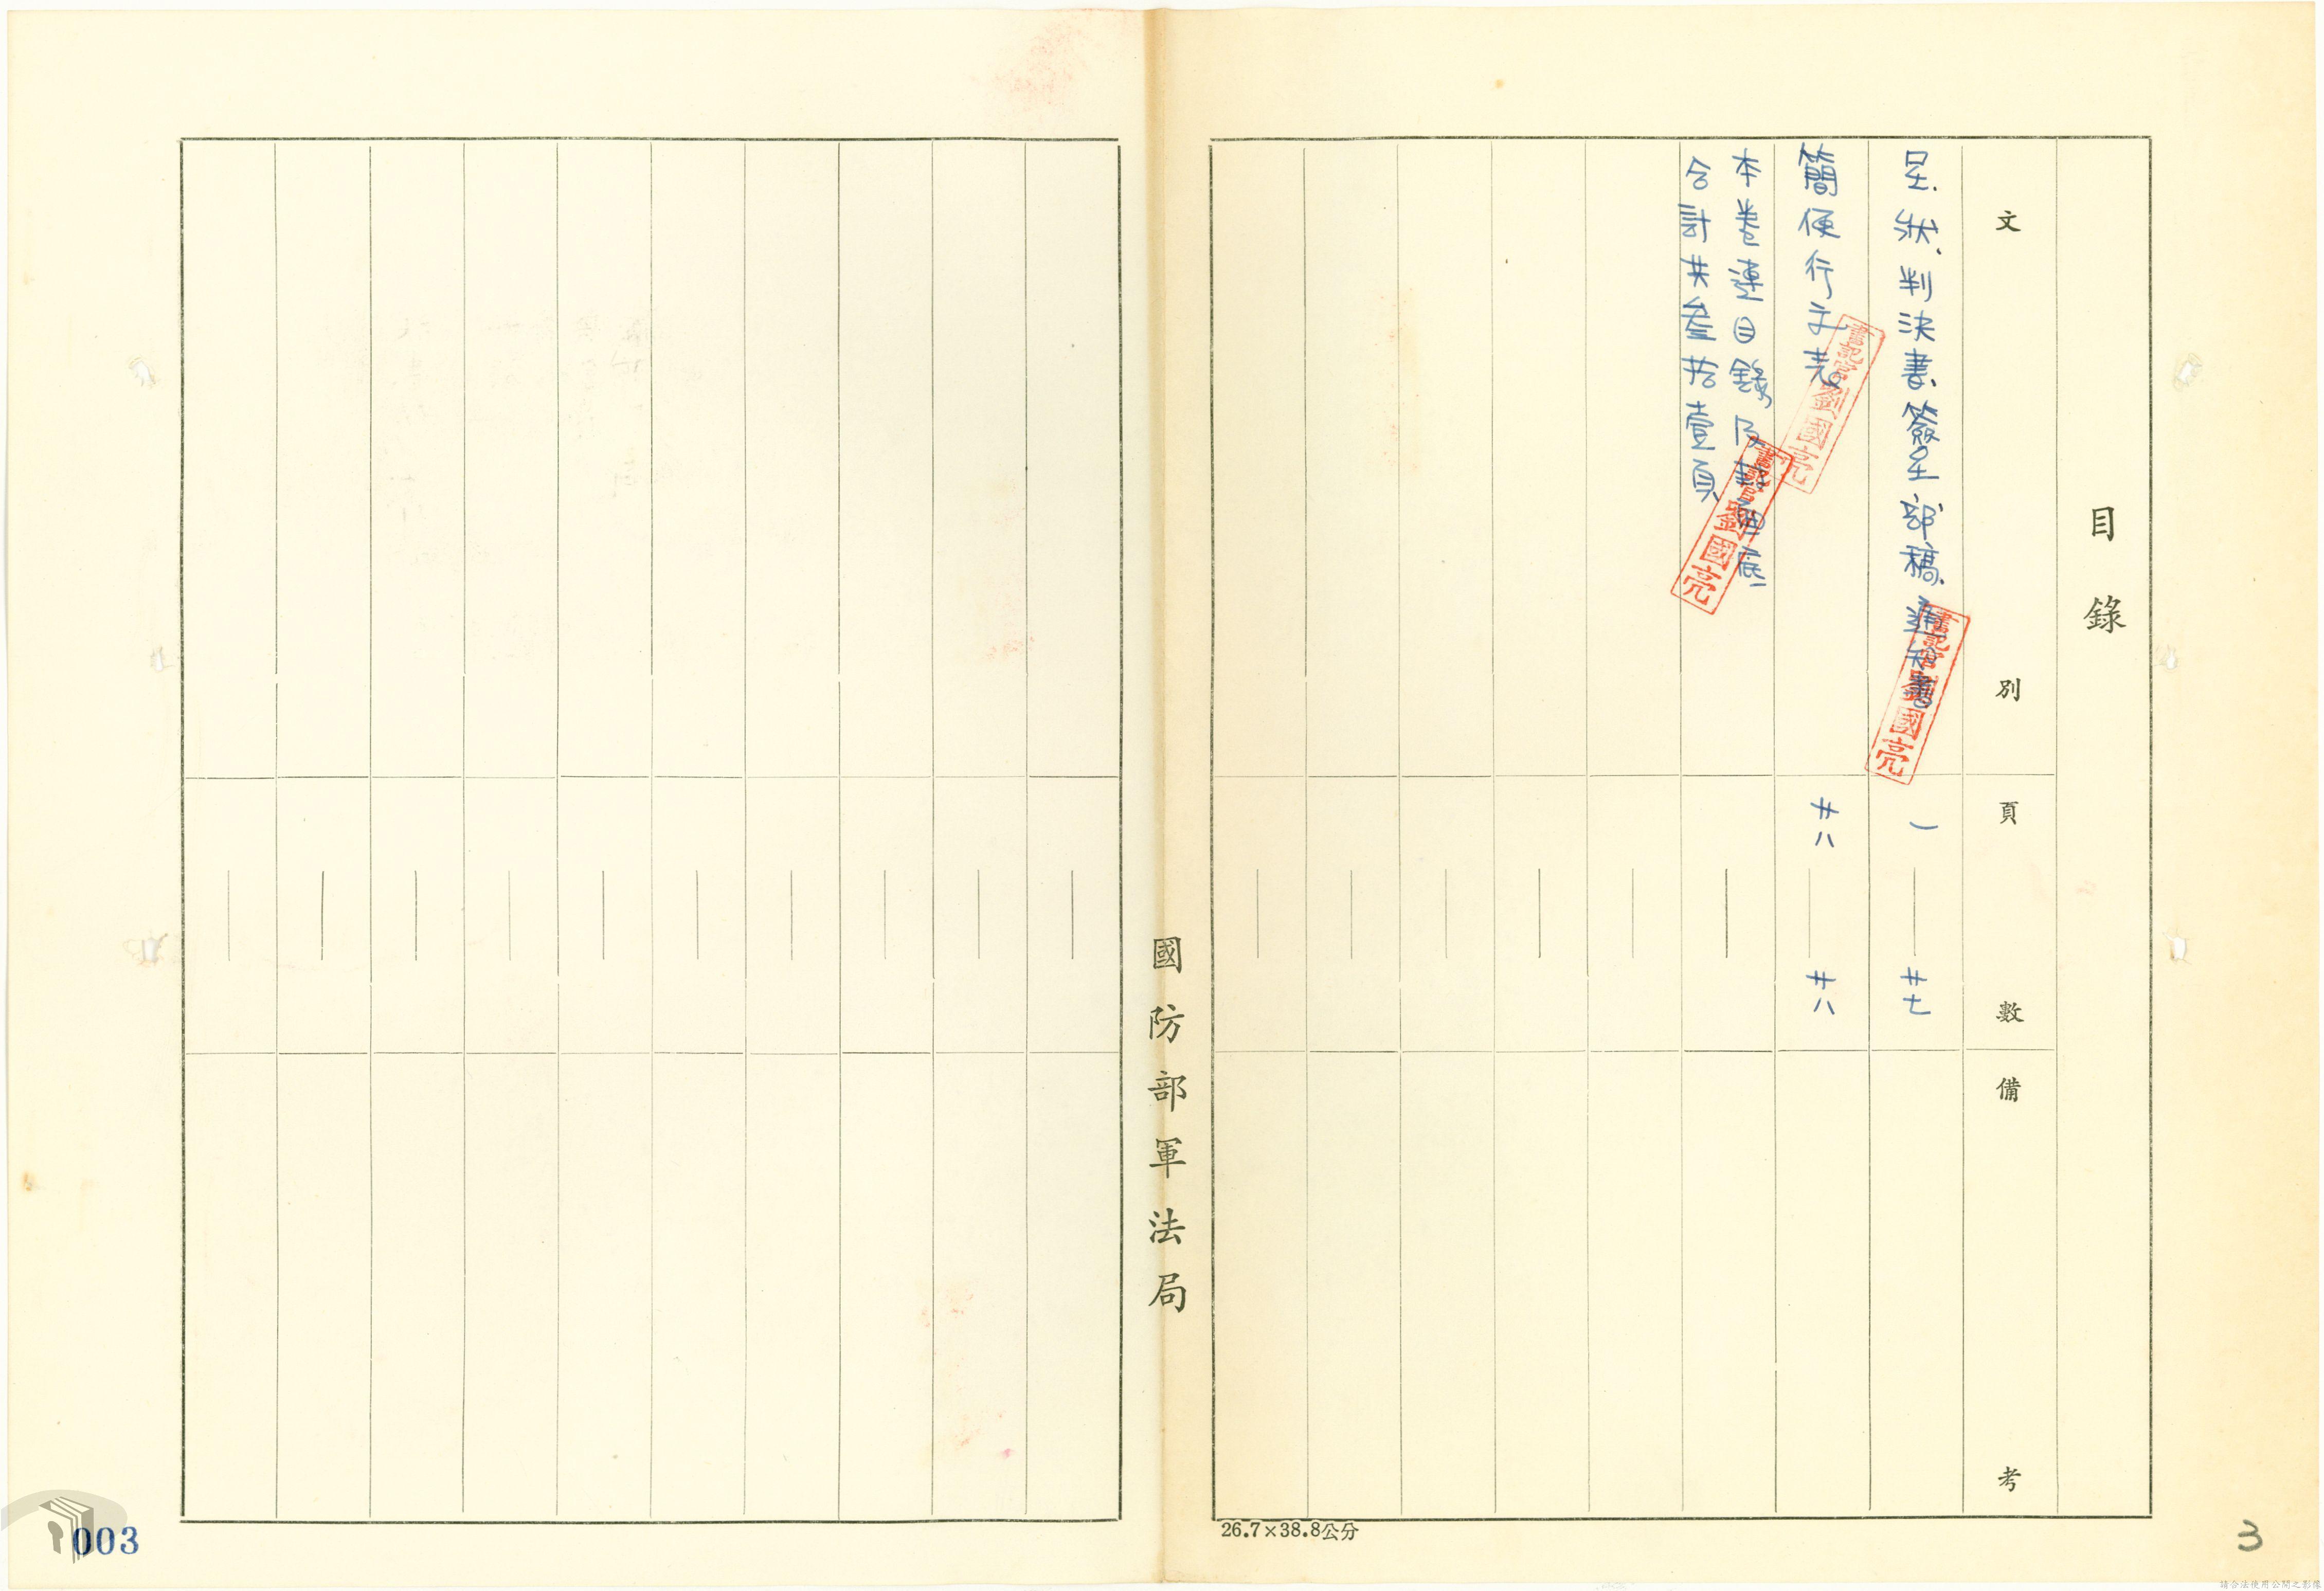 目錄
文別
頁數
備考
呈、狀、判決書、簽呈、部稿、通知書
一
廿七
簡便行文表
廿八
廿八
本卷連目錄及封面底
合計共叁拾壹頁
書記官劉國亮
書記官劉國亮
書記官劉國亮
國防部軍法局
26.7×38.8公分
003
3
請合法使用公開之影像